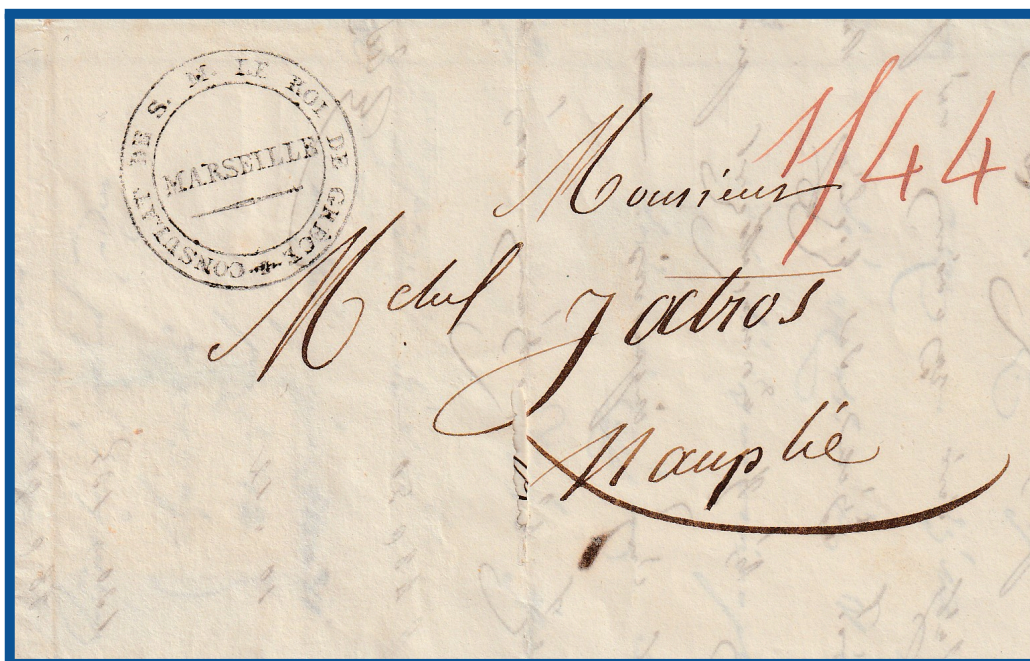 CONSULAT DE S. M. LE ROI DE GRÈCE
MARSEILLE
1/44
Monsieur
Mchel Jatros
Nauplie